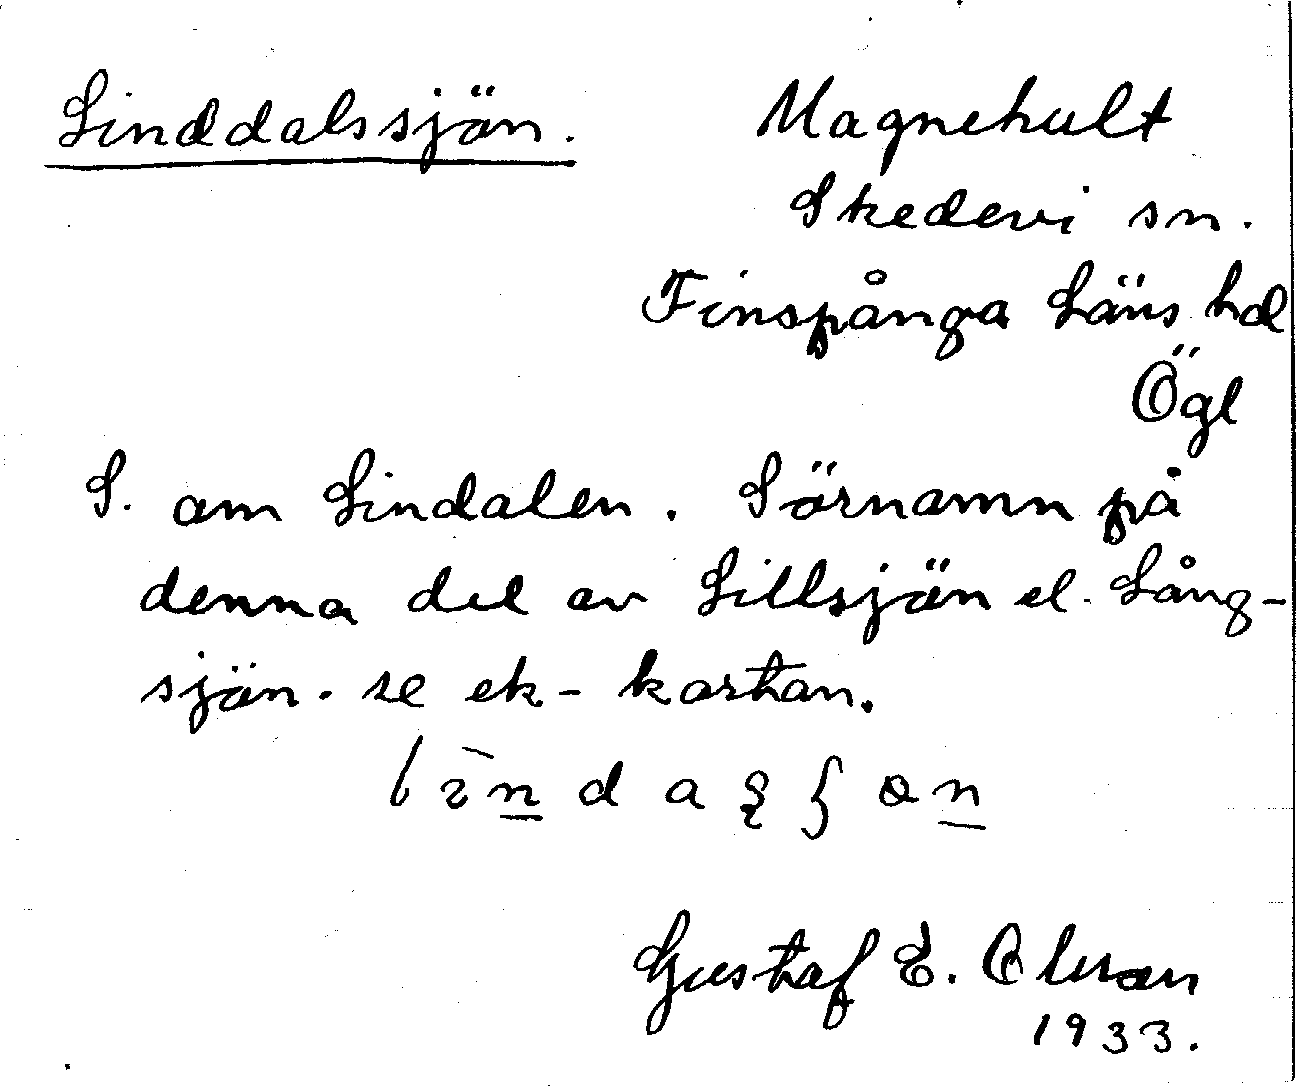 Linddalssjön. Magnehult
Skedevi sn.
Finspånga Läns hd
Ögl
S. om Lindalen. Särnamn på
denna del av Lillsjön el. Lång-
sjön. se ek-kartan.
Gustaf E. Olsson
1933.